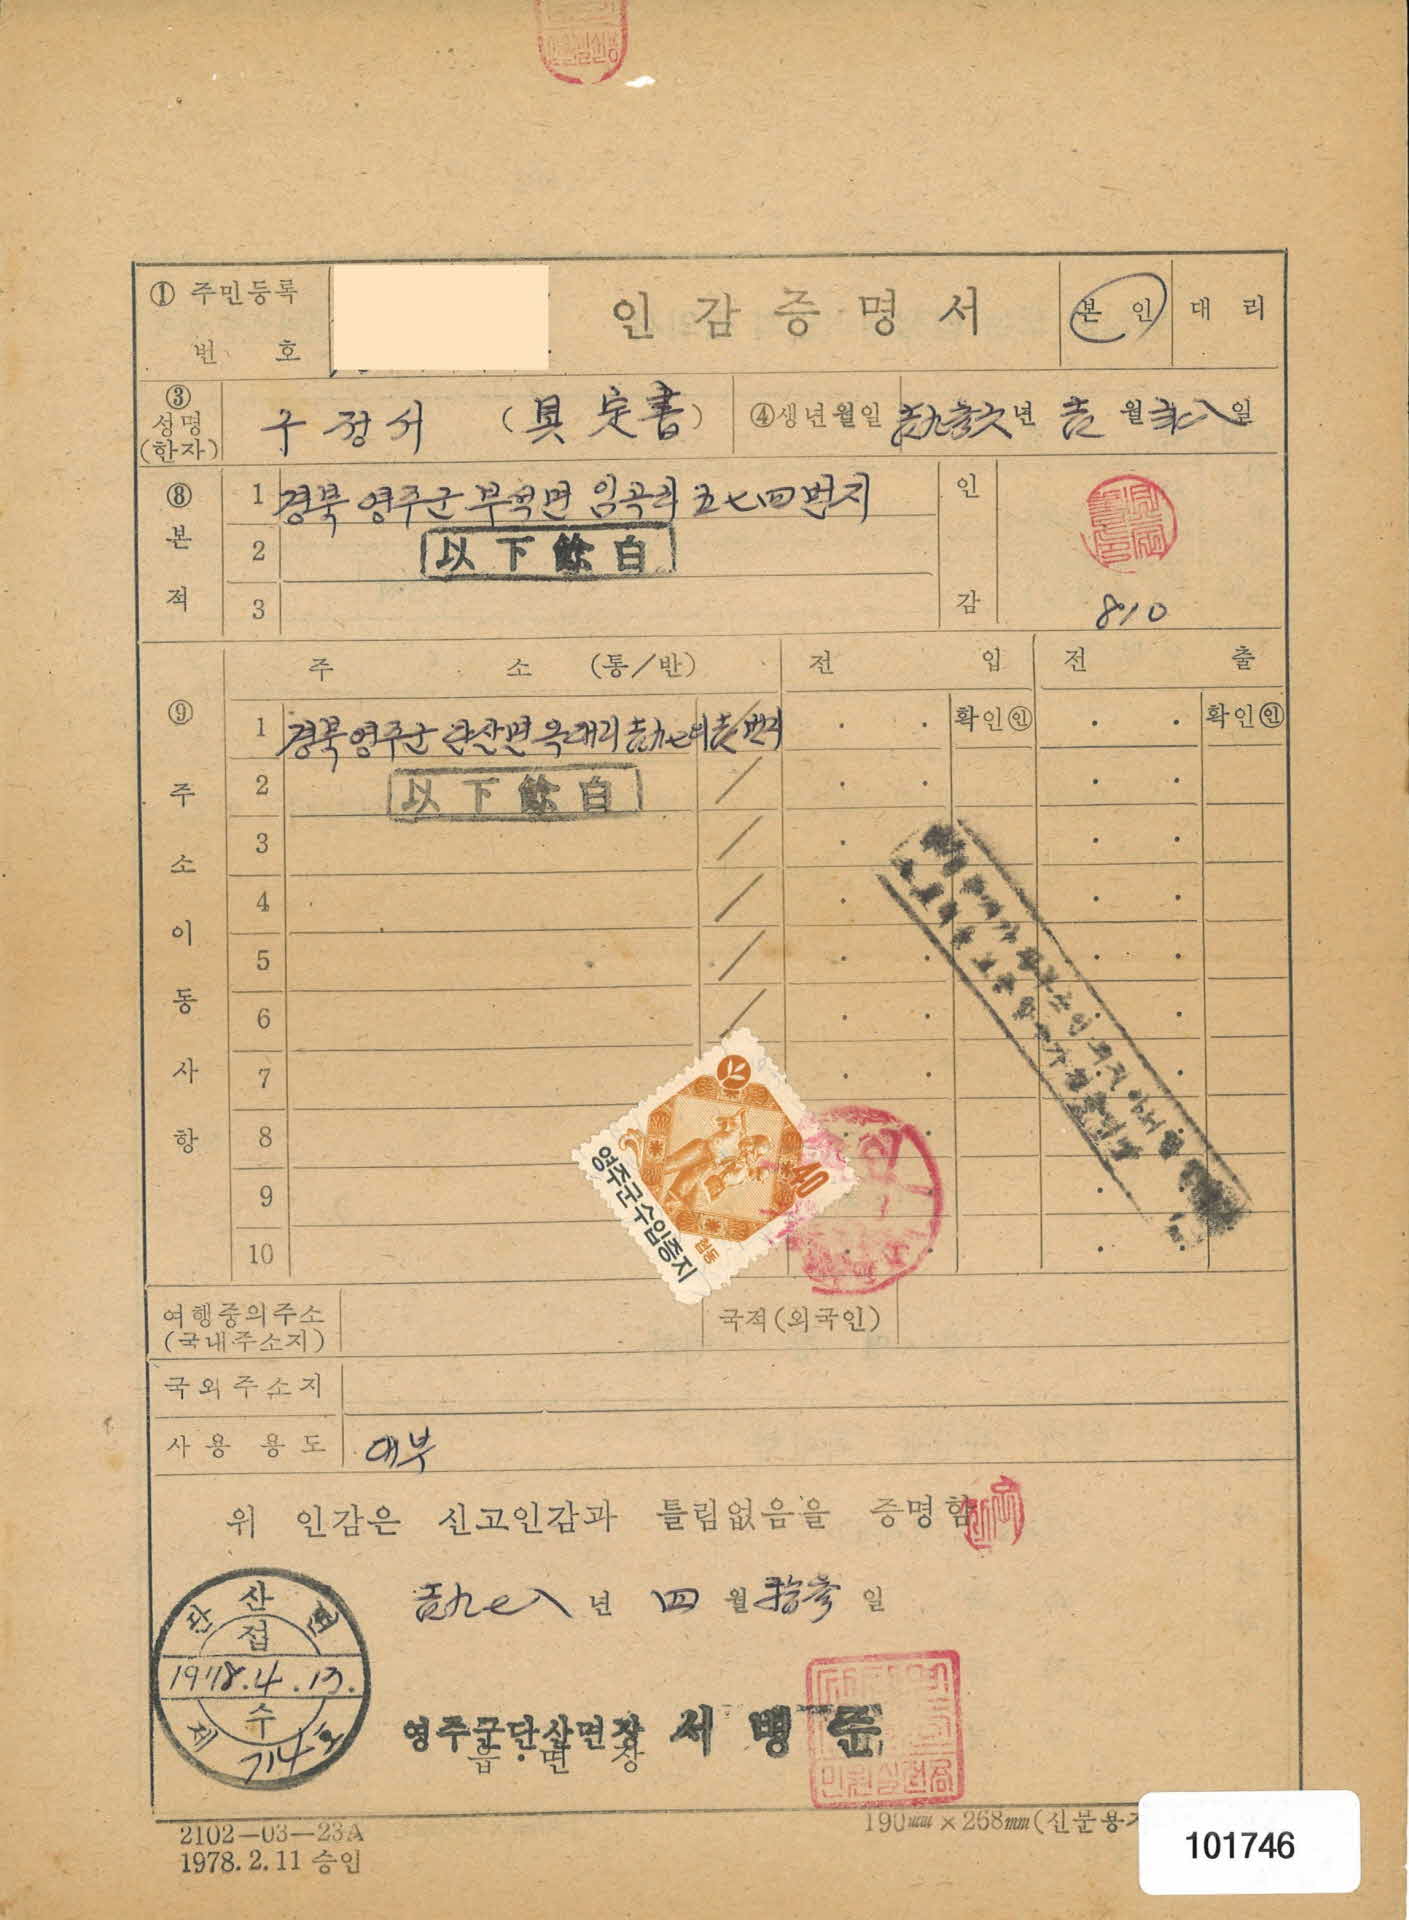 ① 주민등록
번 호
인 감 증 명 서
본 인
대 리
③
성명
(한자)
구 정 서 (具 定 書)
④생년월일
년 月 월 八 일
⑧
본
적
1 경북 영주군 부석면 임곡리 五七四번지
2 以下餘白
3
인
감
810
⑨
주
소
이
동
사
항
주 소 (통/반)
전 입
전 출
1 경북 영주군 단산면 옥대리 번지
확인㊞
확인㊞
2 以下餘白
3
4
5
6
7
8
9
10
40
영주군수입증지
여행중의주소
(국내주소지)
국적(외국인)
국외주소지
사용 용도
대부
위 인감은 신고인감과 틀림없음을 증명함
壹九七八 년 四 월 拾參 일
단 산 면
접
1978.4.13.
수
제 714 호
영주군단산면장 서 병 준
읍·면 장
2102-03-23A
1978.2.11 승인
190mm×268mm(신문용지
101746